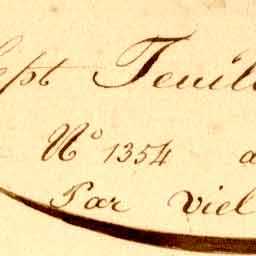 Sept Feuil
N° 1354 a
Par viel